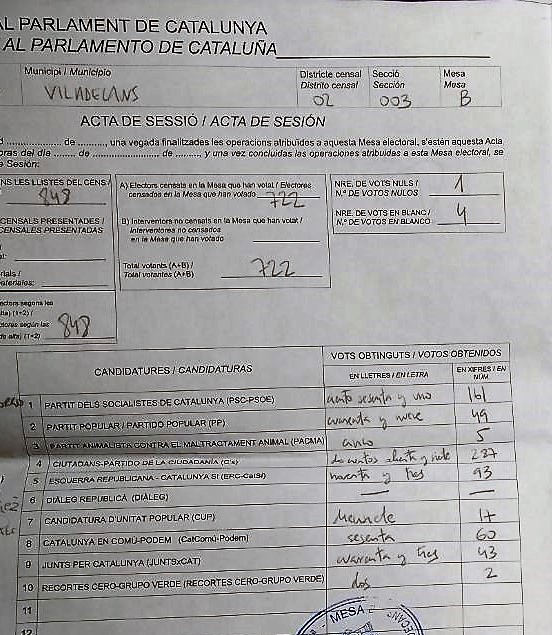 AL PARLAMENT DE CATALUNYA
AL PARLAMENTO DE CATALUÑA
Municipi / Municipio
VILADECANS
Districte censal
Distrito censal
02
Secció
Sección
003
Mesa
Mesa
B
ACTA DE SESSIÓ / ACTA DE SESIÓN
de .........., una vegada finalitzades les operacions atribuïdes a aquesta Mesa electoral, s'estén aquesta Acta
oras del día ......... de ......................... de ......... y una vez concluidas las operaciones atribuidas a esta Mesa electoral, se
e Sesión:
NS LES LLISTES DEL CENS /
848
CENSALS PRESENTADES /
CENSALES PRESENTADAS
al:
rials /
ateriales:
ectors segons les
ores según las
848
A) Electors censats en la Mesa que han votat / Electores
censados en la Mesa que han votado
722
B) Interventors no censats en la Mesa que han votat /
Interventores no censados
en la Mesa que han votado
Total votants (A+B) /
Total votantes (A+B)
722
NRE. DE VOTS NULS /
N.º DE VOTOS NULOS
1
NRE. DE VOTS EN BLANC /
N.º DE VOTOS EN BLANCO
4
CANDIDATURES / CANDIDATURAS
VOTS OBTINGUTS / VOTOS OBTENIDOS
EN LLETRES / EN LETRA
EN XIFRES / EN NÚM.
1 PARTIT DELS SOCIALISTES DE CATALUNYA (PSC-PSOE) ciento sesenta y uno 161
2 PARTIT POPULAR / PARTIDO POPULAR (PP) cuarenta y nueve 49
3 PARTIT ANIMALISTA CONTRA EL MALTRACTAMENT ANIMAL (PACMA) cinco 5
4 CIUTADANS-PARTIDO DE LA CIUDADANÍA (C's) doscientos ochenta y siete 287
5 ESQUERRA REPUBLICANA - CATALUNYA SÍ (ERC-CatSí) noventa y tres 93
6 DIÀLEG REPUBLICÀ (DIÀLEG) — —
7 CANDIDATURA D'UNITAT POPULAR (CUP) 17
8 CATALUNYA EN COMÚ-PODEM (CatComú-Podem) sesenta 60
9 JUNTS PER CATALUNYA (JUNTSxCAT) cuarenta y tres 43
10 RECORTES CERO-GRUPO VERDE (RECORTES CERO-GRUPO VERDE) dos 2
11
12
MESA